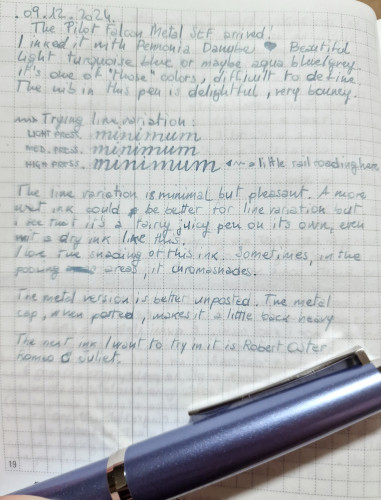 .09.12.2024.
The Pilot Falcon Metal SEF arrived!
I inked it with Pennonia Danube ♥ Beautiful
light turquoise blue or maybe aqua blue/grey.
it's one of "those" colors, difficult to define
The nib in this pen is delightful, very bouncy.
Trying line variation:
LIGHT PRESS. minimum
MED. PRESS. minimum
HIGH PRESS. minimum a little railroading here
The line variation is minimal but pleasant. A more
wet ink could be better for line variation but
I see that it's a fairly juicy pen on its own, even
with a dry ink like this.
I love the shading of this ink. Sometimes, in the
pooling areas, it chromoshades.
The metal version is better unposted. The metal
cap, even posted, makes it a little back heavy
The next ink I want to try in it is Robert Oster
Romeo & Juliet.
19